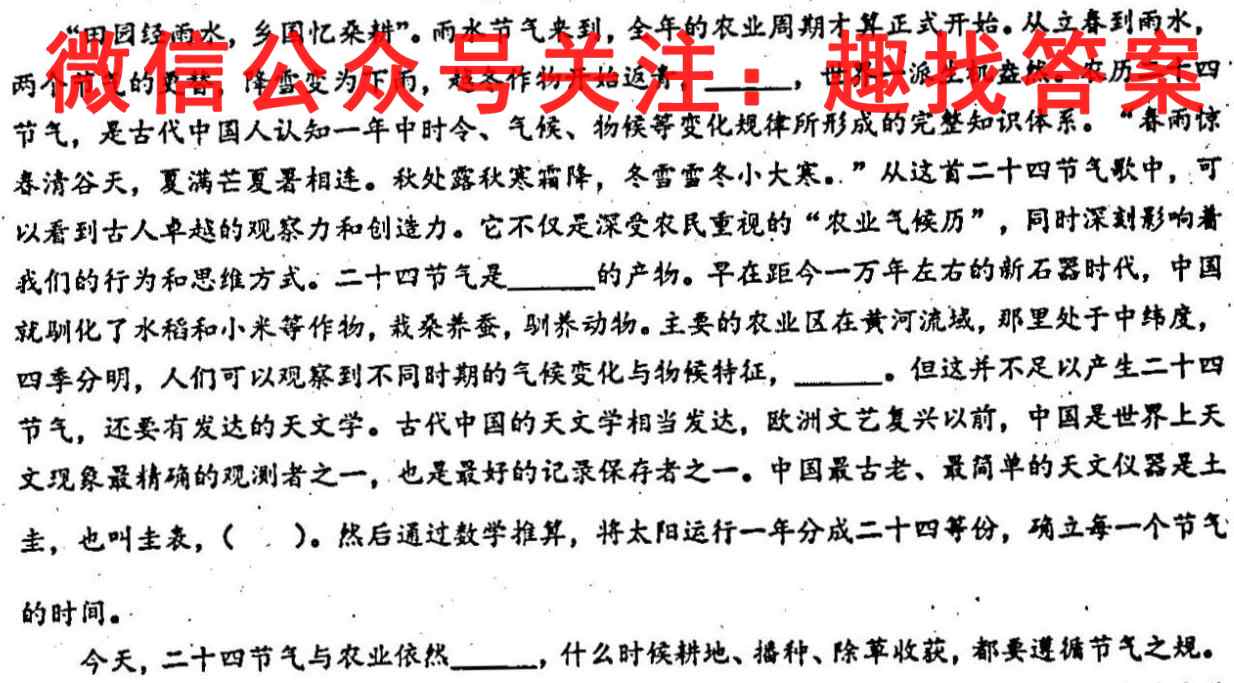 “田园经雨水，乡国忆桑耕”。雨水节气来到，全年的农业周期才算正式开始。从立春到雨水，
微信公众号关注：趣找答案
两个节气的更替，降雪变为下雨，越冬作物开始返青，______，世界一派生机盎然。农历二十四
节气，是古代中国人认知一年中时令、气候、物候等变化规律所形成的完整知识体系。“春雨惊
春清谷天，夏满芒夏暑相连。秋处露秋寒霜降，冬雪雪冬小大寒。”从这首二十四节气歌中，可
以看到古人卓越的观察力和创造力。它不仅是深受农民重视的“农业气候历”，同时深刻影响着
我们的行为和思维方式。二十四节气是______的产物。早在距今一万年左右的新石器时代，中国
就驯化了水稻和小米等作物，栽桑养蚕，驯养动物。主要的农业区在黄河流域，那里处于中纬度，
四季分明，人们可以观察到不同时期的气候变化与物候特征，______。但这并不足以产生二十四
节气，还要有发达的天文学。古代中国的天文学相当发达，欧洲文艺复兴以前，中国是世界上天
文现象最精确的观测者之一，也是最好的记录保存者之一。中国最古老、最简单的天文仪器是土
圭，也叫圭表，（　　）。然后通过数学推算，将太阳运行一年分成二十四等份，确立每一个节气
的时间。
今天，二十四节气与农业依然______，什么时候耕地、播种、除草收获，都要遵循节气之规。